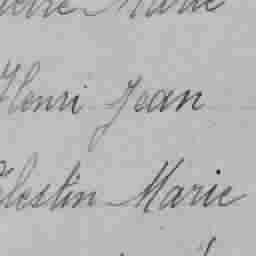 Marie
Henri Jean
Célestin Marie